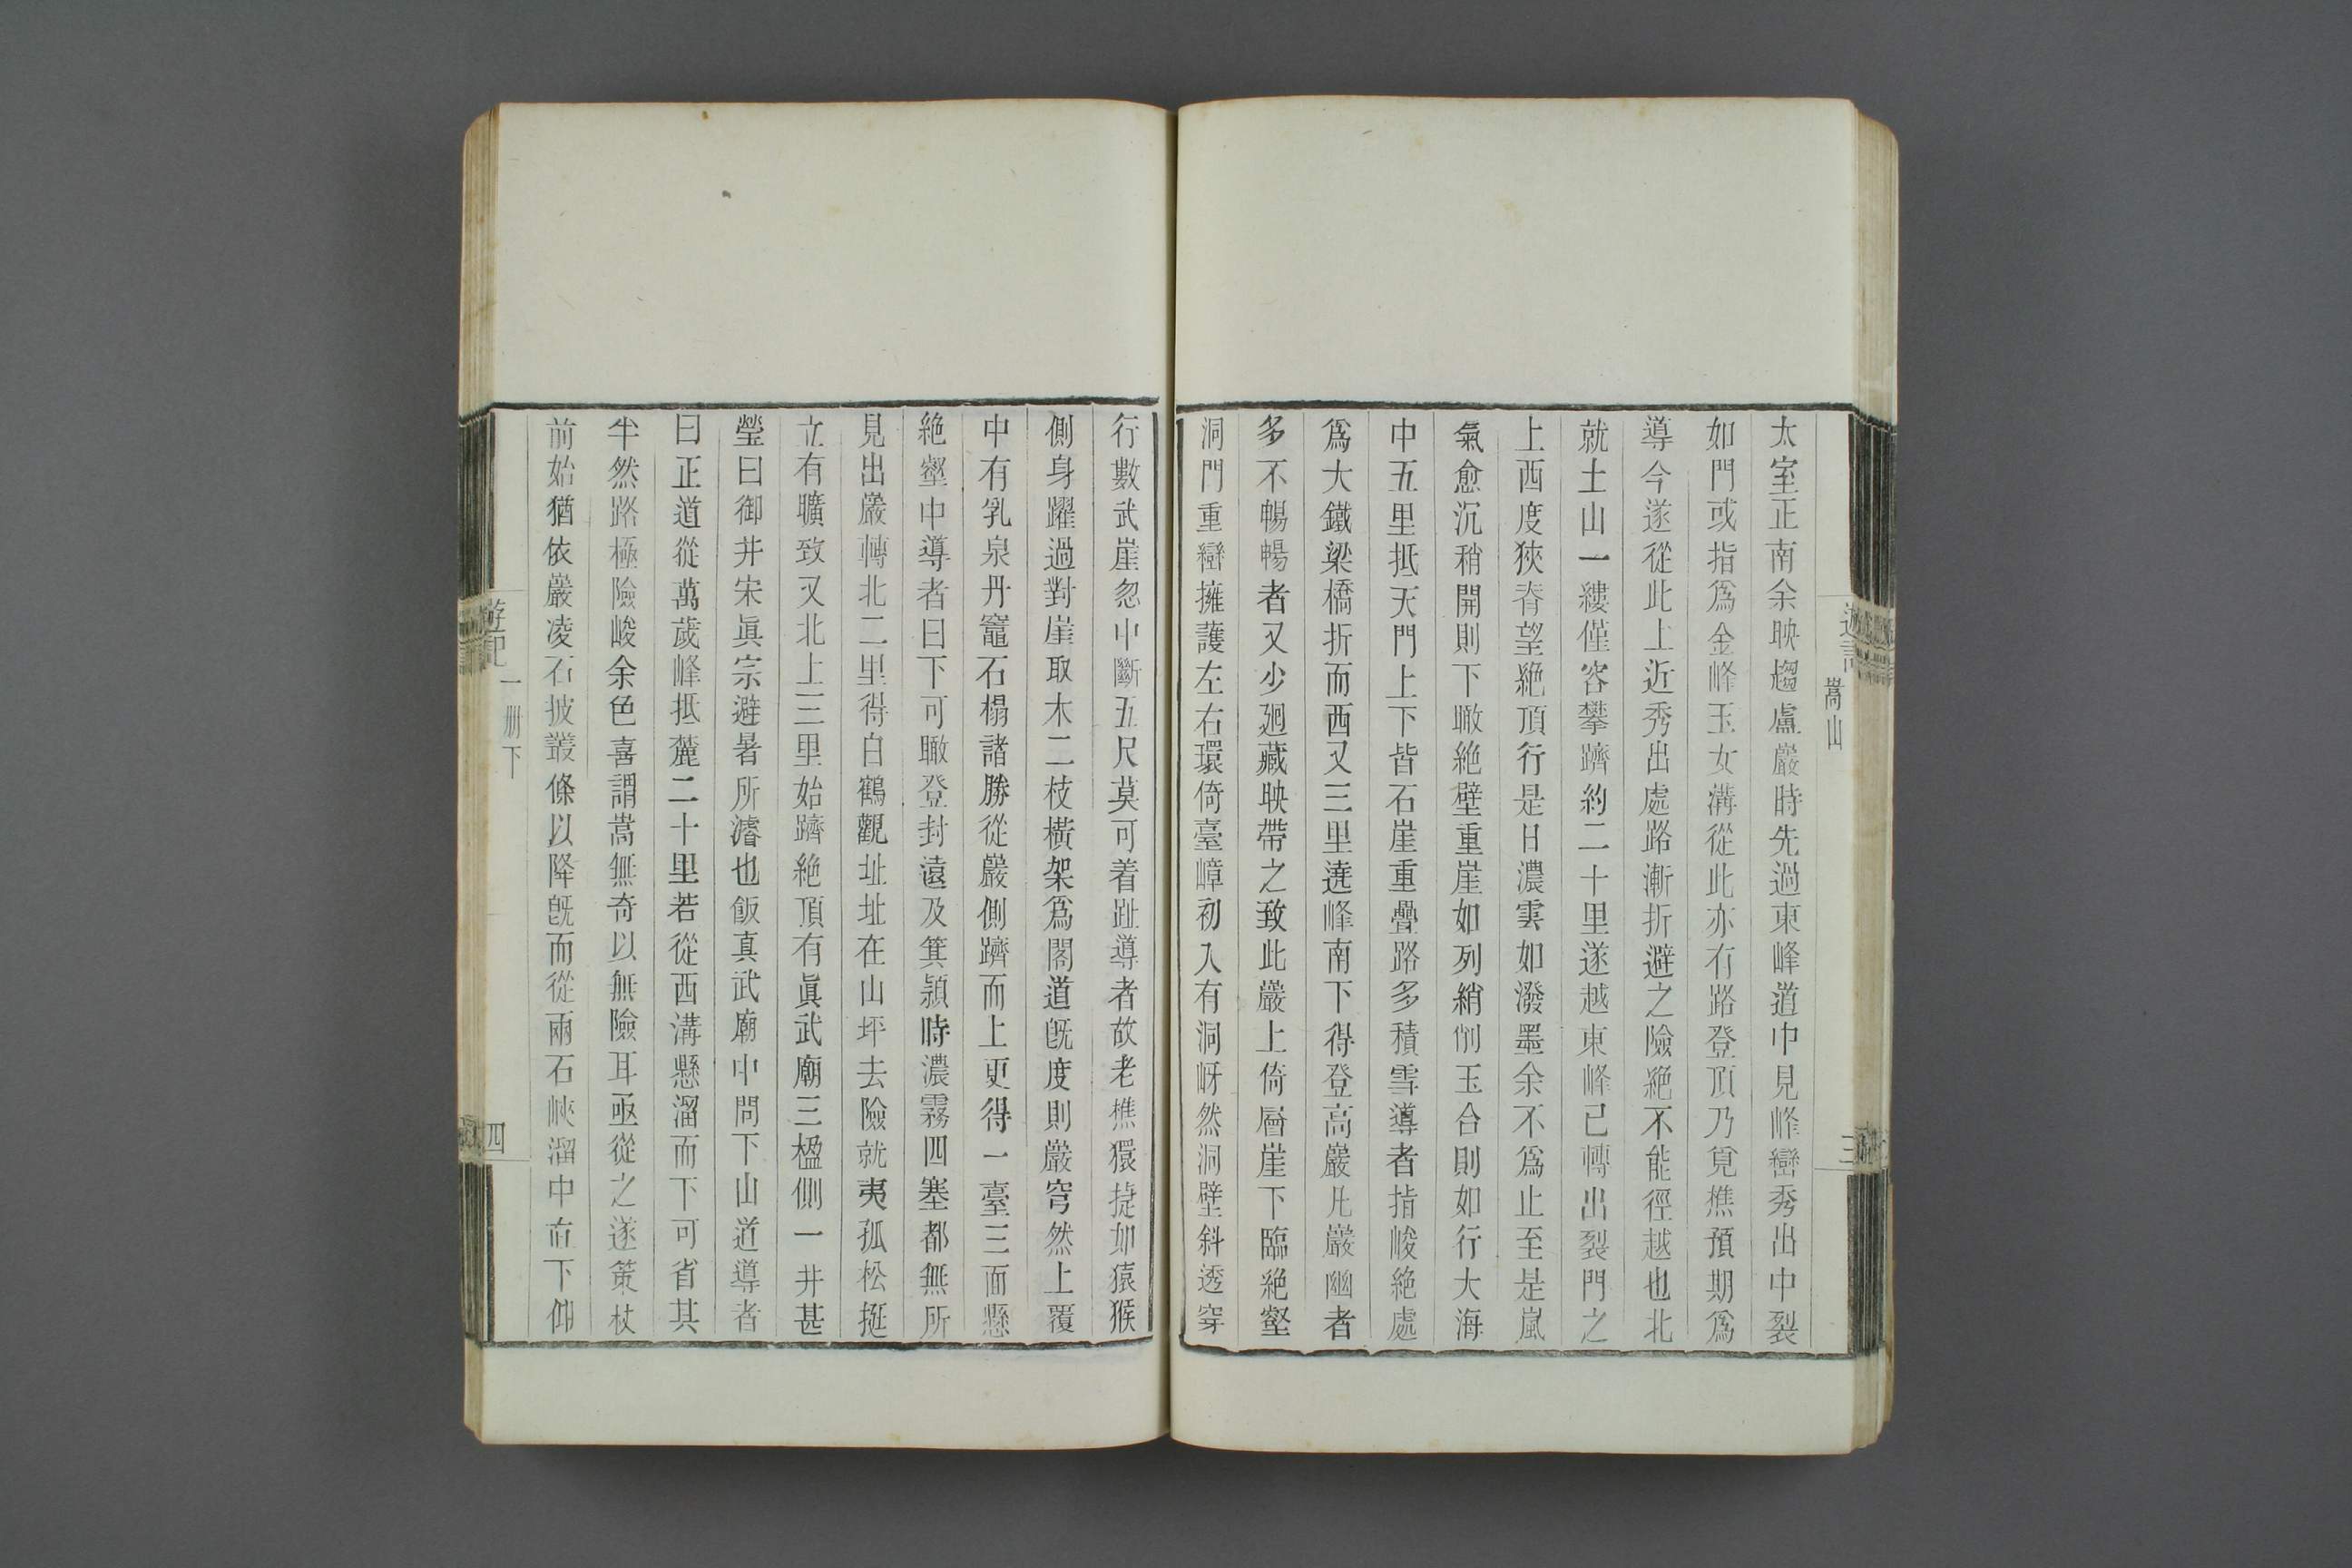 嵩山
三
太室正南余映趨盧巖時先過東峰道中見峰巒秀出中裂
如門或指爲金峰玉女溝從此亦有路登頂乃覓樵預期爲
導今遂從此上近秀出處路漸折避之險絶不能徑越也北
就土山一縷僅容攀躋約二十里遂越東峰已轉出裂門之
上西度狹脊望絶頂行是日濃雲如潑墨余不爲止至是嵐
氣愈沉稍開則下瞰絶壁重崖如列綃削玉合則如行大海
中五里抵天門上下皆石崖重疊路多積雪導者指峻絶處
爲大鐵梁橋折而西又三里遶峰南下得登高巖凡巖幽者
多不暢暢者又少迴藏映帶之致此巖上倚層崖下臨絶壑
洞門重巒擁護左右環倚臺嶂初入有洞岈然洞壁斜透穿
行數武崖忽中斷五尺莫可着趾導者故老樵獧捷如猿猴
側身躍過對崖取木二枝橫架爲閣道旣度則巖穹然上覆
中有乳泉丹竈石榻諸勝從巖側躋而上更得一臺三面懸
絶壑中導者曰下可瞰登封遠及箕潁時濃霧四塞都無所
見出巖轉北二里得白鶴觀址址在山坪去險就夷孤松挺
立有曠致又北上三里始躋絶頂有眞武廟三楹側一井甚
瑩曰御井宋眞宗避暑所濬也飯真武廟中問下山道導者
曰正道從萬歲峰抵麓二十里若從西溝懸溜而下可省其
半然路極險峻余色喜謂嵩無奇以無險耳亟從之遂策杖
前始猶依巖凌石披叢條以降旣而從兩石峽溜中直下仰
遊記
一册下
四